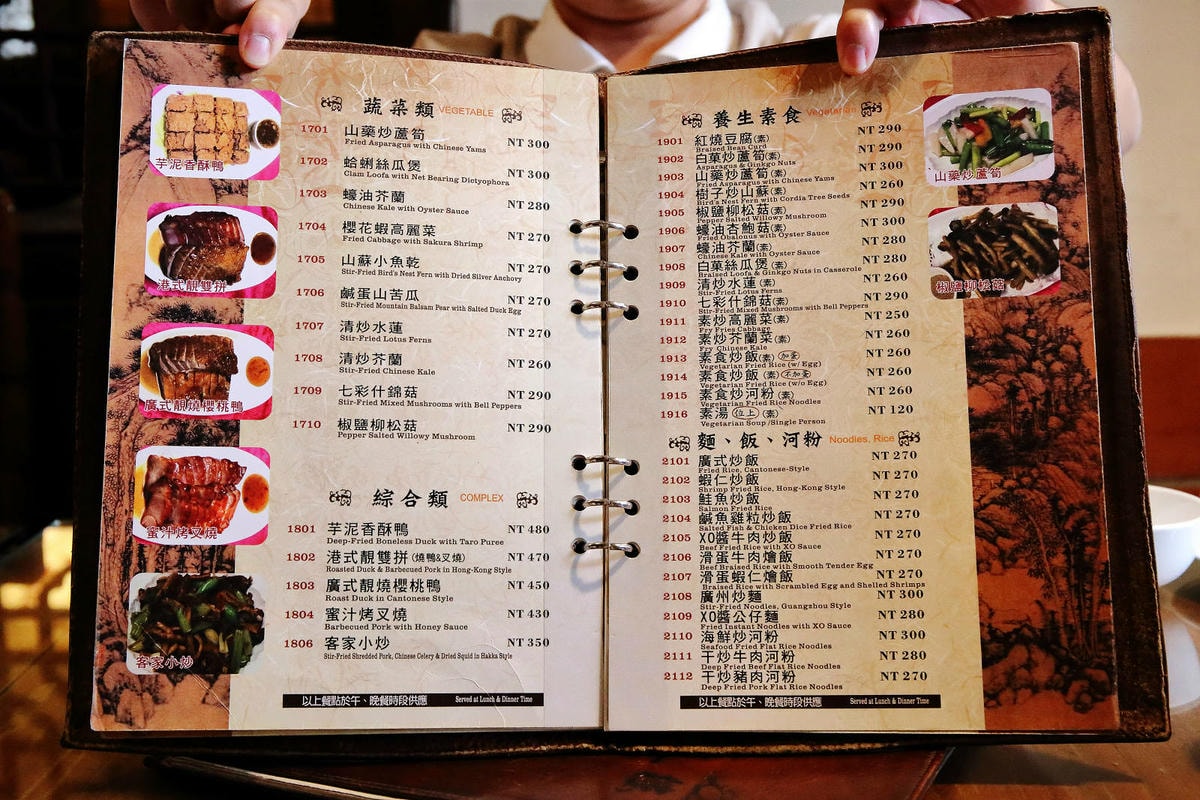 蔬菜類 VEGETABLE
1701 山藥炒蘆筍 NT 300
Fried Asparagus with Chinese Yams
1702 蛤蜊絲瓜煲 NT 300
Clam Loofa with Net Bearing Dictyophora
1703 蠔油芥蘭 NT 280
Chinese Kale with Oyster Sauce
1704 櫻花蝦高麗菜 NT 270
Fried Cabbage with Sakura Shrimp
1705 山蘇小魚乾 NT 270
Stir-Fried Bird's Nest Fern with Dried Silver Anchovy
1706 鹹蛋山苦瓜 NT 270
Stir-Fried Mountain Balsam Pear with Salted Duck Egg
1707 清炒水蓮 NT 270
Stir-Fried Lotus Ferns
1708 清炒芥蘭 NT 260
Stir-Fried Chinese Kale
1709 七彩什錦菇 NT 290
Stir-Fried Mixed Mushrooms with Bell Peppers
1710 椒鹽柳松菇 NT 290
Pepper Salted Willowy Mushroom
綜合類 COMPLEX
1801 芋泥香酥鴨 NT 480
Deep-Fried Boneless Duck with Taro Puree
1802 港式靚雙拼(燒鴨&叉燒) NT 470
Roasted Duck & Barbecued Pork in Hong-Kong Style
1803 廣式靚燒櫻桃鴨 NT 450
Roast Duck in Cantonese Style
1804 蜜汁烤叉燒 NT 430
Barbecued Pork with Honey Sauce
1806 客家小炒 NT 350
Stir-Fried Shredded Pork, Chinese Celery & Dried Squid in Hakka Style
以上餐點於午、晚餐時段供應 Served at Lunch & Dinner Time
芋泥香酥鴨
港式靚雙拼
廣式靚燒櫻桃鴨
蜜汁烤叉燒
客家小炒
養生素食 Vegetarian
1901 紅燒豆腐(素) NT 290
Braised Bean Curd
1902 白菓炒蘆筍(素) NT 290
Asparagus & Ginkgo Nuts
1903 山藥炒蘆筍(素) NT 300
Fried Asparagus with Chinese Yams
1904 樹子炒山蘇(素) NT 260
Bird's Nest Fern with Cordia Tree Seeds
1905 椒鹽柳松菇(素) NT 290
Pepper Salted Willowy Mushroom
1906 蠔油杏鮑菇(素) NT 300
Fried Obalonus with Oyster Sauce
1907 蠔油芥蘭(素) NT 280
Chinese Kale with Oyster Sauce
1908 白菓絲瓜煲(素) NT 280
Braised Loofa & Ginkgo Nuts in Casserole
1909 清炒水蓮(素) NT 260
Stir-Fried Lotus Ferns
1910 七彩什錦菇(素) NT 290
Stir-Fried Mixed Mushrooms with Bell Peppers
1911 素炒高麗菜(素) NT 250
Fry Fries Cabbage
1912 素炒芥蘭菜(素) NT 260
Fry Chinese Kale
1913 素食炒飯(素)(加蛋) NT 260
Vegetarian Fried Rice (w/ Egg)
1914 素食炒飯(素)(不加蛋) NT 260
Vegetarian Fried Rice (w/o Egg)
1915 素食炒河粉(素) NT 260
Vegetarian Fried Rice Noodles
1916 素湯(位上)(素) NT 120
Vegetarian Soup /Single Person
麵、飯、河粉 Noodles, Rice
2101 廣式炒飯 NT 270
Fried Rice, Cantonese-Style
2102 蝦仁炒飯 NT 270
Shrimp Fried Rice, Hong-Kong Style
2103 鮭魚炒飯 NT 270
Salmon Fried Rice
2104 鹹魚雞粒炒飯 NT 270
Salted Fish & Chicken Dice Fried Rice
2105 XO醬牛肉炒飯 NT 270
Beef Fried Rice with XO Sauce
2106 滑蛋牛肉燴飯 NT 270
Beef Braised Rice with Smooth Tender Egg
2107 滑蛋蝦仁燴飯 NT 270
Braised Rice with Scrambled Egg and Shelled Shrimps
2108 廣州炒麵 NT 300
Stir-Fried Noodles, Guangzhou Style
2109 XO醬公仔麵 NT 280
Fried Instant Noodles with XO Sauce
2110 海鮮炒河粉 NT 300
Seafood Fried Flat Rice Noodles
2111 干炒牛肉河粉 NT 280
Deep Fried Beef Flat Rice Noodles
2112 干炒豬肉河粉 NT 270
Deep Fried Pork Flat Rice Noodles
以上餐點於午、晚餐時段供應 Served at Lunch & Dinner Time
山藥炒蘆筍
椒鹽柳松菇